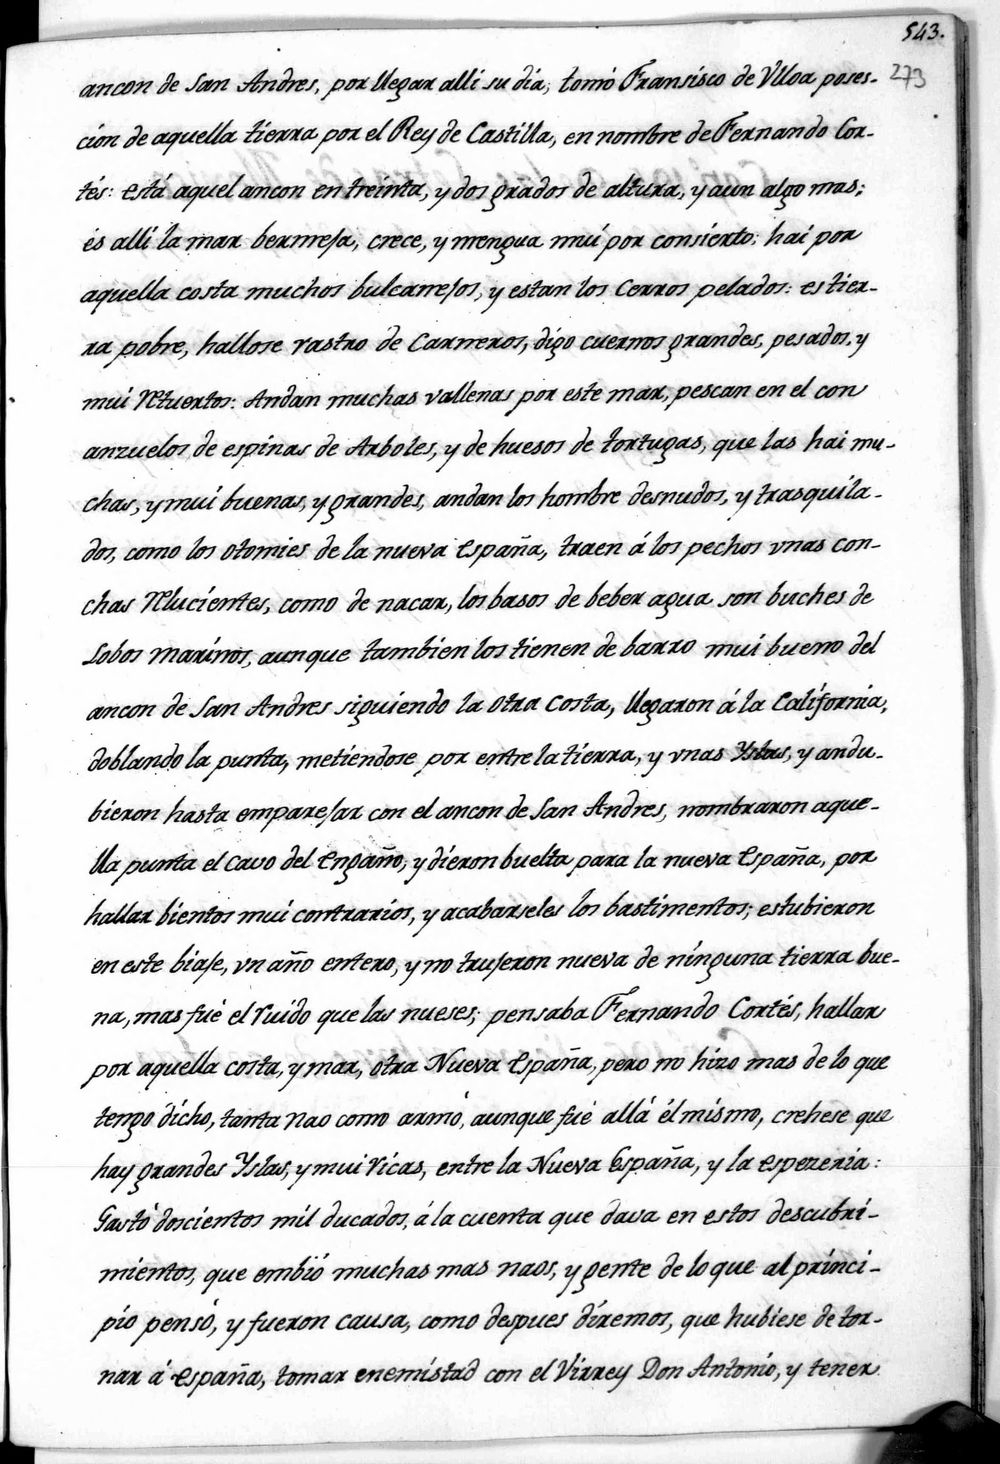 543.
273
ancon de San Andres, por llegar alli su dia; tomó Fransisco de Vlloa poses-
cion de aquella tierra por el Rey de Castilla, en nombre de Fernando Cor-
tés: está aquel ancon en treinta, y dos grados de altura, y aun algo mas;
és alli la mar bermeja, crece, y mengua mui por consierto: hai por
aquella costa muchos bulcanejos, y estan los Cerros pelados: es tier-
ra pobre, hallose rastro de Carneros, digo cuernos grandes, pesados, y
mui retuertos: Andan muchas vallenas por este mar, pescan en el con
anzuelos de espinas de Arboles, y de huesos de tortugas, que las hai mu-
chas, y mui buenas, y grandes, andan los hombre desnudos, y trasquila-
dos, como los otomies de la nueva España, traen á los pechos vnas con-
chas relucientes, como de nacar, los basos de beber agua son buches de
Lobos marinos, aunque tambien los tienen de barro mui bueno del
ancon de San Andres siguiendo la otra costa, llegaron á la California,
doblando la punta, metiendose por entre la tierra, y vnas Yslas, y andu-
bieron hasta emparejar con el ancon de San Andres, nombraron aque-
lla punta el cavo del engaño, y dieron buelta para la nueva España, por
hallar bientos mui contrarios, y acabarseles los bastimentos; estubieron
en este biaje, vn año entero, y no trujeron nueva de ninguna tierra bue-
na, mas fué el ruido que las nueses; pensaba Fernando Cortés, hallar
por aquella costa, y mar, otra Nueva España, pero no hizo mas de lo que
tengo dicho, tanta nao como armó, aunque fué allá él mismo, crehese que
hay grandes Yslas, y mui ricas, entre la Nueva España, y la espezeria:
Gastó doscientos mil ducados, á la cuenta que dava en estos descubri-
mientos, que embió muchas mas naos, y gente de lo que al princi-
pio pensó, y fueron causa, como despues diremos, que hubiese de tor-
nar á España, tomar enemistad con el Virrey Don Antonio, y tener